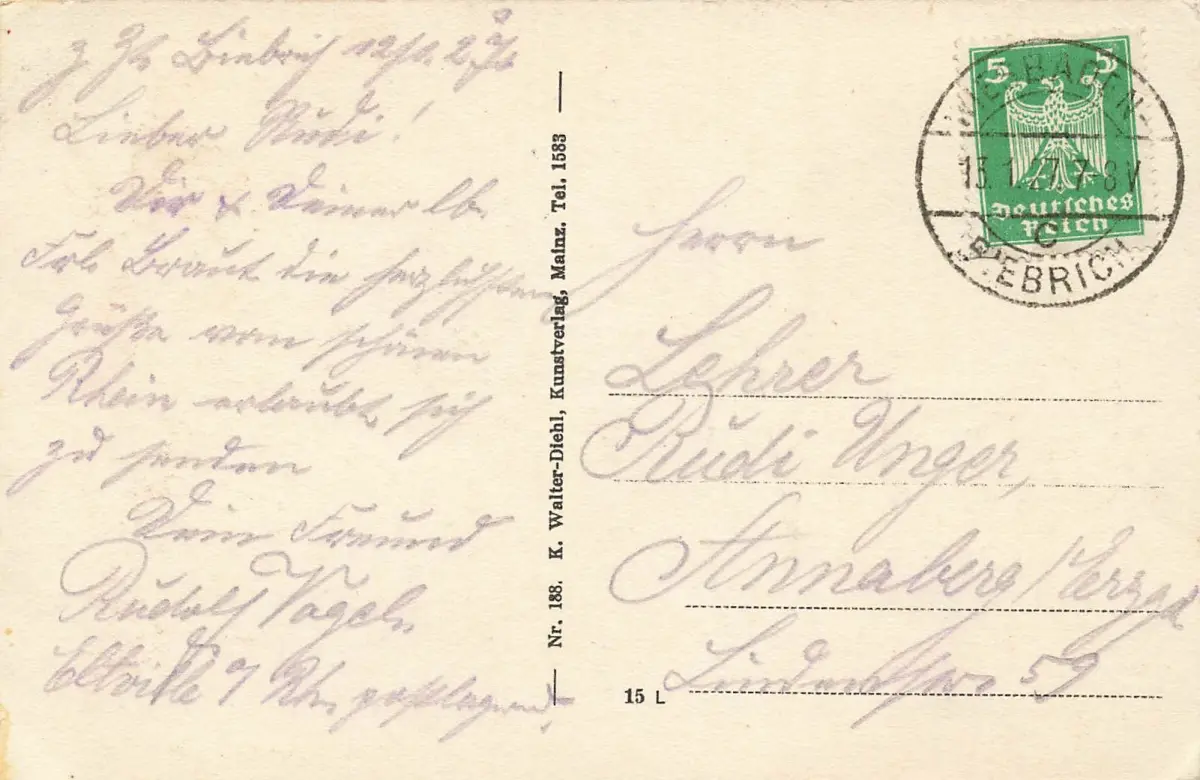 z. Zt. Biebrich 12/1. 27.
Lieber Rudi!
Dir & Deiner lb.
Frl. Braut die herzlichsten
Grüße vom schönen
Rhein erlaubt sich
zu senden
Dein Freund
Rudolf Vogel.
Eltville a/ Rh. postlagernd.
Nr. 188. K. Walter-Diehl, Kunstverlag, Mainz. Tel. 1583
5 5
Deutsches
Reich
WIESBADEN-
13.1.27.7-8V
C
BIEBRICH
Herrn
Lehrer
Rudi Unger,
Annaberg /Erzgeb.
Lindenstr. 59
15 L